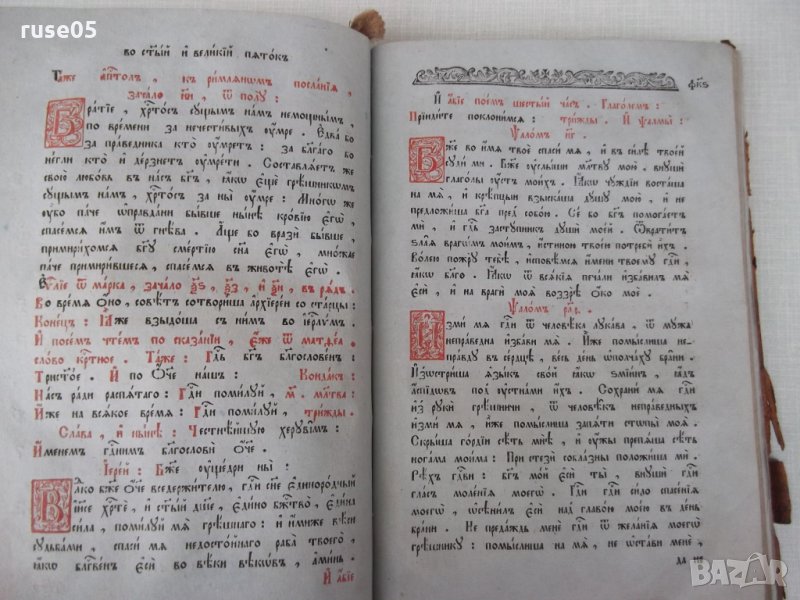 ruse05
во ст҃ы́й и҆ вели́кїй пѧто́къ
Та́же а҆п҃лъ , къ ри́млѧнѡмъ посла́нїѧ ,
зача́ло , ѿ полꙋ̀ :
Бра́тїе , хр҃то́съ сꙋ́щымъ на́мъ не́мощнымъ ,
по вре́мени за нечести́выхъ ᲂу҆́мре . Е҆два́ бо
за пра́ведника кто̀ ᲂу҆́мретъ : за бл҃га́го бо
не́гли кто̀ и҆ де́рзнетъ ᲂу҆мре́ти . Составлѧ́етъ же
свою̀ любо́вь въ на́съ бг҃ъ , ꙗ҆́кѡ є҆щѐ грѣ́шникѡмъ
сꙋ́щымъ на́мъ , хр҃то́съ за ны̀ ᲂу҆́мре : Мно́гѡ же
ᲂу҆́бо па́че ѡ҆правда́ни бы́вше ны́нѣ кро́вїю є҆гѡ̀ ,
спасе́мсѧ и҆́мъ ѿ гнѣ́ва . А҆́ще бо вразѝ бы́вше ,
примири́хомсѧ бг҃ꙋ сме́ртїю сн҃а є҆гѡ̀ , мно́жае
па́че примири́вшесѧ , спасе́мсѧ въ животѣ̀ є҆гѡ̀ .
Е҆ѵ҃лїе ѿ ма́рка , зача́ло и҆ въ рѧ́дъ .
Во вре́мѧ ѻ҆́но , совѣ́тъ сотвори́ша а҆рхїере́и со ста́рцы :
Коне́цъ : Ꙗ҆̀же взыдо́ша съ ни́мъ во і҆ер҃ли́мъ .
И҆ пое́мъ чте́мъ по сказа́нїи , є҆́же ѿ матѳе́а
сло́во кр҃тное . Та́же : Гд҃ь бг҃ъ бл҃гослове́нъ :
Трист҃о́е . И҆ по ѻ҆́ч҃е на́шъ : Конда́къ :
На́съ ра́ди распѧ́таго : Гд҃и поми́лꙋй , м҃ . Мл҃тва :
И҆́же на всѧ́кое вре́мѧ : Гд҃и поми́лꙋй , три́жды .
Сла́ва , и҆ ны́нѣ : Честнѣ́йшꙋю херꙋві̑мъ :
И҆́менемъ гд҃нимъ бл҃гословѝ ѻ҆́ч҃е .
І҆ере́й : Бж҃е ᲂу҆ще́дри ны̀ :
Вл҃ко бж҃е ѻ҆́ч҃е вседержи́телю , гд҃и сн҃е є҆диноро́дный
і҆и҃се хр҃тѐ , и҆ ст҃ы́й дш҃е , є҆ди́но бж҃тво̀ , є҆ди́на
си́ла , поми́лꙋй мѧ̀ грѣ́шнаго : и҆ и҆́миже вѣ́си
сꙋдьба́ми , спасѝ мѧ̀ недосто́йнаго раба̀ твоего̀ .
ꙗ҆́кѡ бл҃гве́нъ є҆сѝ во вѣ́ки вѣкѡ́въ , а҆ми́нь .
И҆ а҆́бїе
И҆ а҆́бїе пое́мъ шесты́й ча́съ . Глаго́лемъ :
Прїиди́те поклони́мсѧ : три́жды . И҆ ѱалмы̀ :
Ѱало́мъ н҃г .
Бж҃е во и҆́мѧ твоѐ спаси́ мѧ , и҆ въ си́лѣ твое́й
сꙋди́ ми . Бж҃е ᲂу҆слы́ши мл҃твꙋ мою̀ , внꙋшѝ
глаго́лы ᲂу҆́стъ мои́хъ . Ꙗ҆́кѡ чꙋ́ждїи воста́ша
на мѧ̀ , и҆ крѣ́пцыи взыска́ша дꙋ́шꙋ мою̀ , и҆ не
предложи́ша бг҃а пред̾ собо́ю . Се́ бо бг҃ъ помога́етъ
ми , и҆ гд҃ь застꙋ́пникъ дꙋшѝ мое́й . Ѿврати́тъ
ѕла̑ѧ врагѡ́мъ мои̑мъ , и҆́стиною твое́ю потребѝ и҆́хъ .
Во́лею пожрꙋ̀ тебѣ̀ , и҆сповѣ́мсѧ и҆́мени твоемꙋ̀ гд҃и ,
ꙗ҆́кѡ бла́го . Ꙗ҆́кѡ ѿ всѧ́кїѧ печа́ли и҆зба́вилъ мѧ̀
є҆сѝ , и҆ на врагѝ моѧ̑ воззрѣ̀ ѻ҆́ко моѐ .
Ѱало́мъ рл҃ѳ .
И҆зми́ мѧ гд҃и ѿ человѣ́ка лꙋка́ва , ѿ мꙋ́жа
непра́ведна и҆зба́ви мѧ . И҆̀же помы́слиша не-
пра́вдꙋ въ се́рдцѣ , ве́сь де́нь ѡ҆полча́хꙋ бра̑ни .
И҆з̾ѡстри́ша ѧ҆зы́къ сво́й ꙗ҆́кѡ ѕмі́инъ , ꙗ҆́дъ
а҆́спїдовъ под̾ ᲂу҆стна́ми и҆́хъ . Сохрани́ мѧ гд҃и
и҆з̾ рꙋкѝ грѣ́шничи , ѿ человѣ̑къ непра́ведныхъ
и҆зми́ мѧ , и҆̀же помы́слиша запѧ́ти стѡпы̀ моѧ̑ .
Скры́ша го́рдїи сѣ́ть мнѣ̀ , и҆ ᲂу҆́жы препѧ́ша сѣ́ть
нога́ма мои́ма : При стезѝ собла́зны положи́ша ми .
Рѣ́хъ гд҃ви : бг҃ъ мо́й є҆сѝ ты̀ , внꙋшѝ гд҃и
гла́съ моле́нїѧ моегѡ̀ . Гд҃и гд҃и си́ло спасе́нїѧ
моегѡ̀ , ѡ҆сѣни́лъ є҆сѝ над̾ главо́ю мое́ю въ де́нь
бра́ни . Не преда́ждь менѐ гд҃и ѿ жела́нїѧ моегѡ̀
грѣ́шникꙋ : помы́слиша на мѧ̀ , не ѡ҆ста́ви менѐ ,
да не
BAZAR